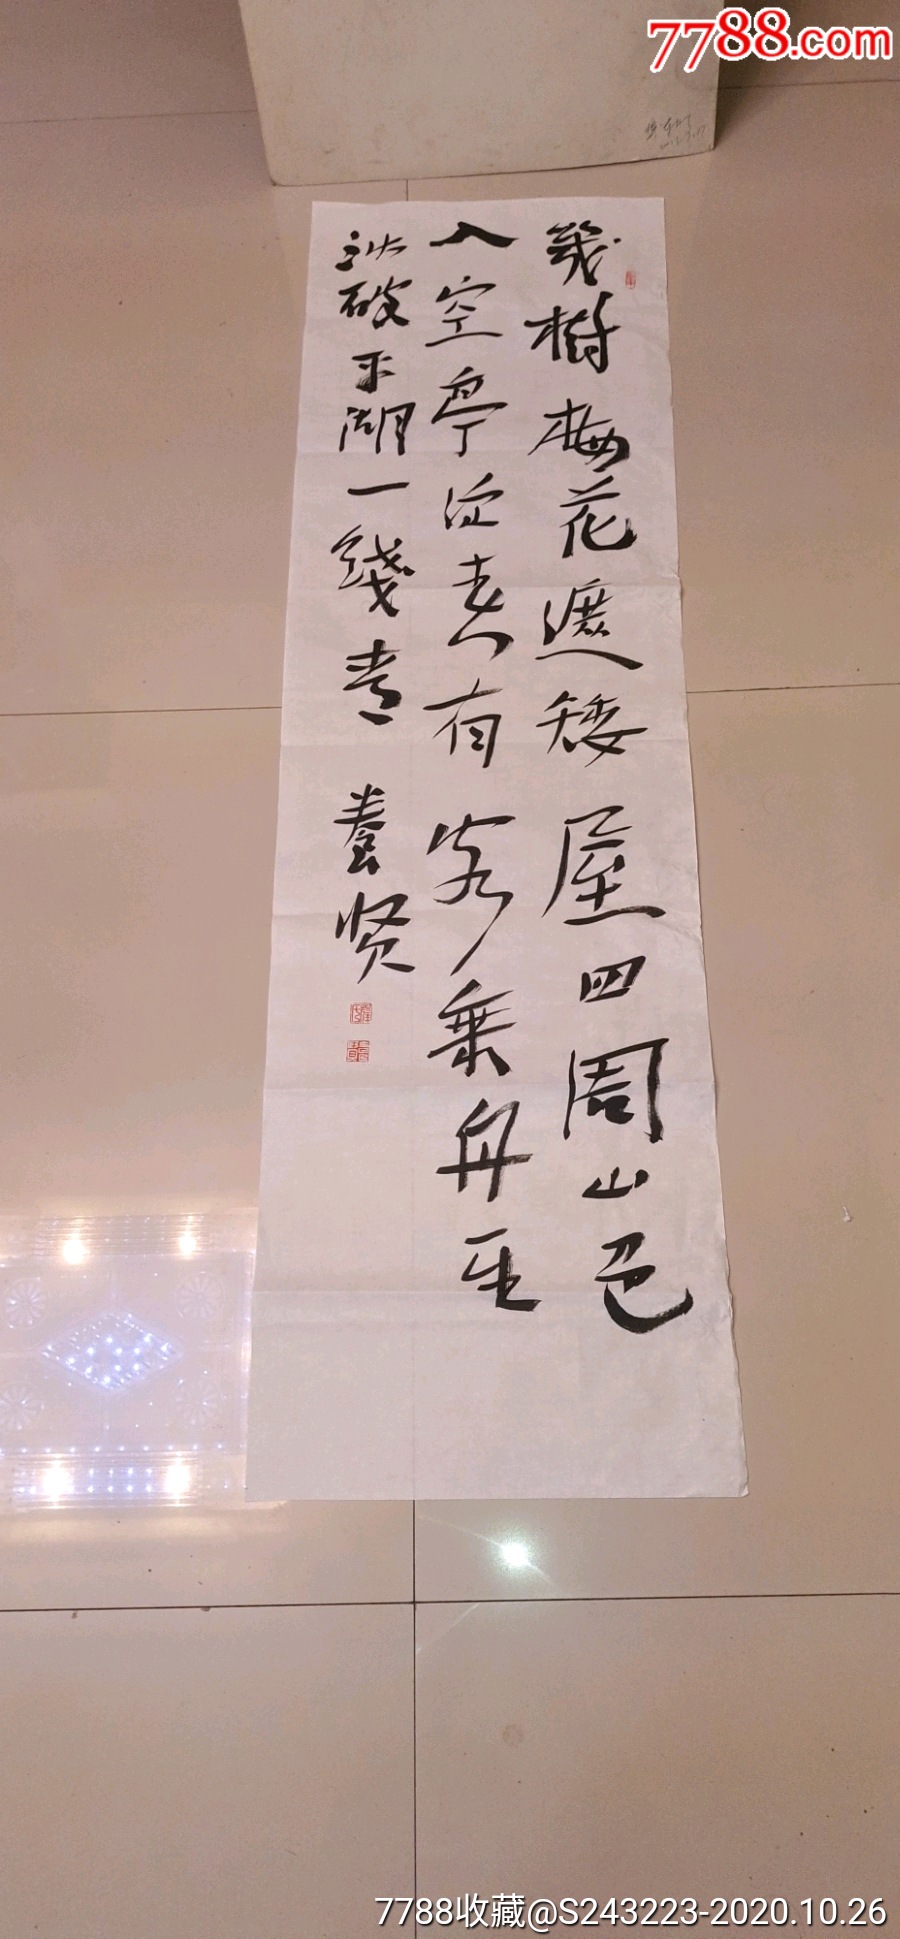 7788.com
幾樹梅花遮矮屋四周山色
入空亭遠有客乘舟至
冲破平湖一綫青 養賢
7788收藏@S243223-2020.10.26